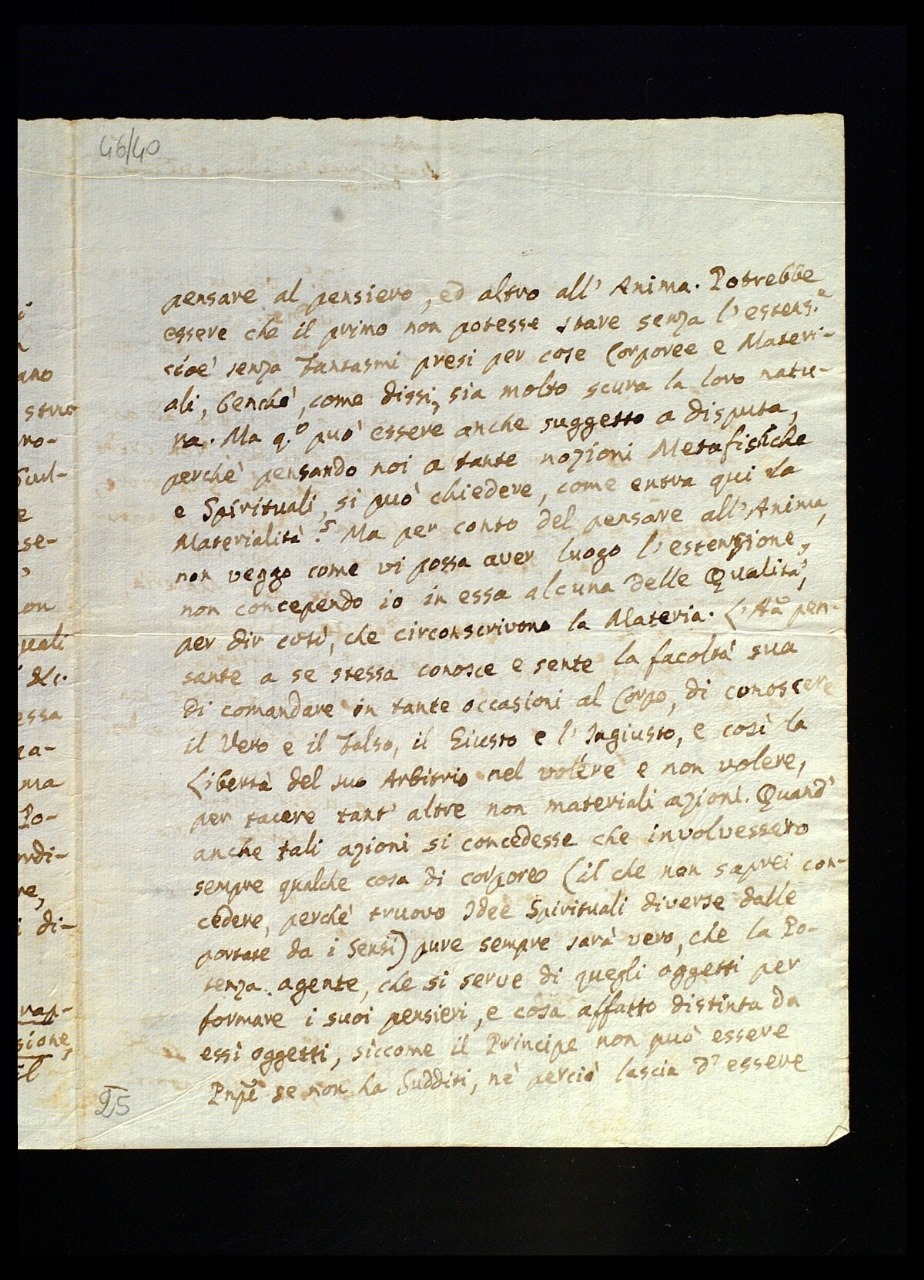 46/40
pensare al pensiero, ed altro all' Anima. Potrebbe
essere che il primo non potesse stare senza l'estens.e
cioè senza Fantasmi presi per cose Corporee e Materi-
ali, benchè, come dissi, sia molto scura la loro natu-
ra. Ma q.o può essere anche suggetto a disputa,
perchè pensando noi a tante nozioni Metafisiche
e Spirituali, si può chiedere, come entra qui la
Materialità? Ma per conto del pensare all'Anima,
non veggo come vi possa aver luogo l'estensione,
non concependo io in essa alcuna delle Qualità,
per dir così, che circonscrivono la Materia. L'Aã pen-
sante a se stessa conosce e sente la facoltà sua
di comandare in tante occasioni al Corpo, di conoscere
il Vero e il Falso, il Giusto e l'Ingiusto, e così la
Libertà del suo Arbitrio nel volere e non volere,
per tacere tant' altre non materiali azioni. Quand'
anche tali azioni si concedesse che involvessero
sempre qualche cosa di corporeo (il che non saprei con-
cedere, perchè truovo Idee Spirituali diverse dalle
portate da i Sensi) pure sempre sarà vero, che la Po-
tenza agente, che si serve di quegli oggetti per
formare i suoi pensieri, e cosa affatto distinta da
essi oggetti, siccome il Principe non può essere
Pnpẽ se non ha Sudditi, nè perciò lascia d'essere
25
ano
stru
no-
Sul-
e
se-
on
quali
&c.
essa
ca-
ma
Po-
ordi-
re,
i di-
rap-
sione,
il